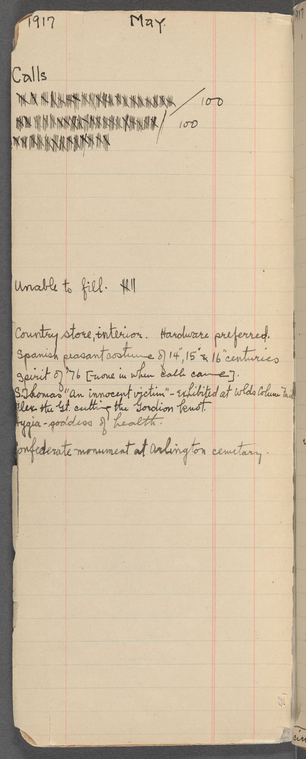 1917 May.
Calls
100
100
Unable to fill.
Country store, interior. Hardware preferred.
Spanish peasant costume of 14", 15" & 16" centuries
Spirit of '76 [none in when call came].
S. Thomas "An innocent victim" - exhibited at Wlds Colum
Alex. the Gt. cutting the Gordion knot.
Hygia - goddess of health.
Confederate monument at Arlington cemetary.